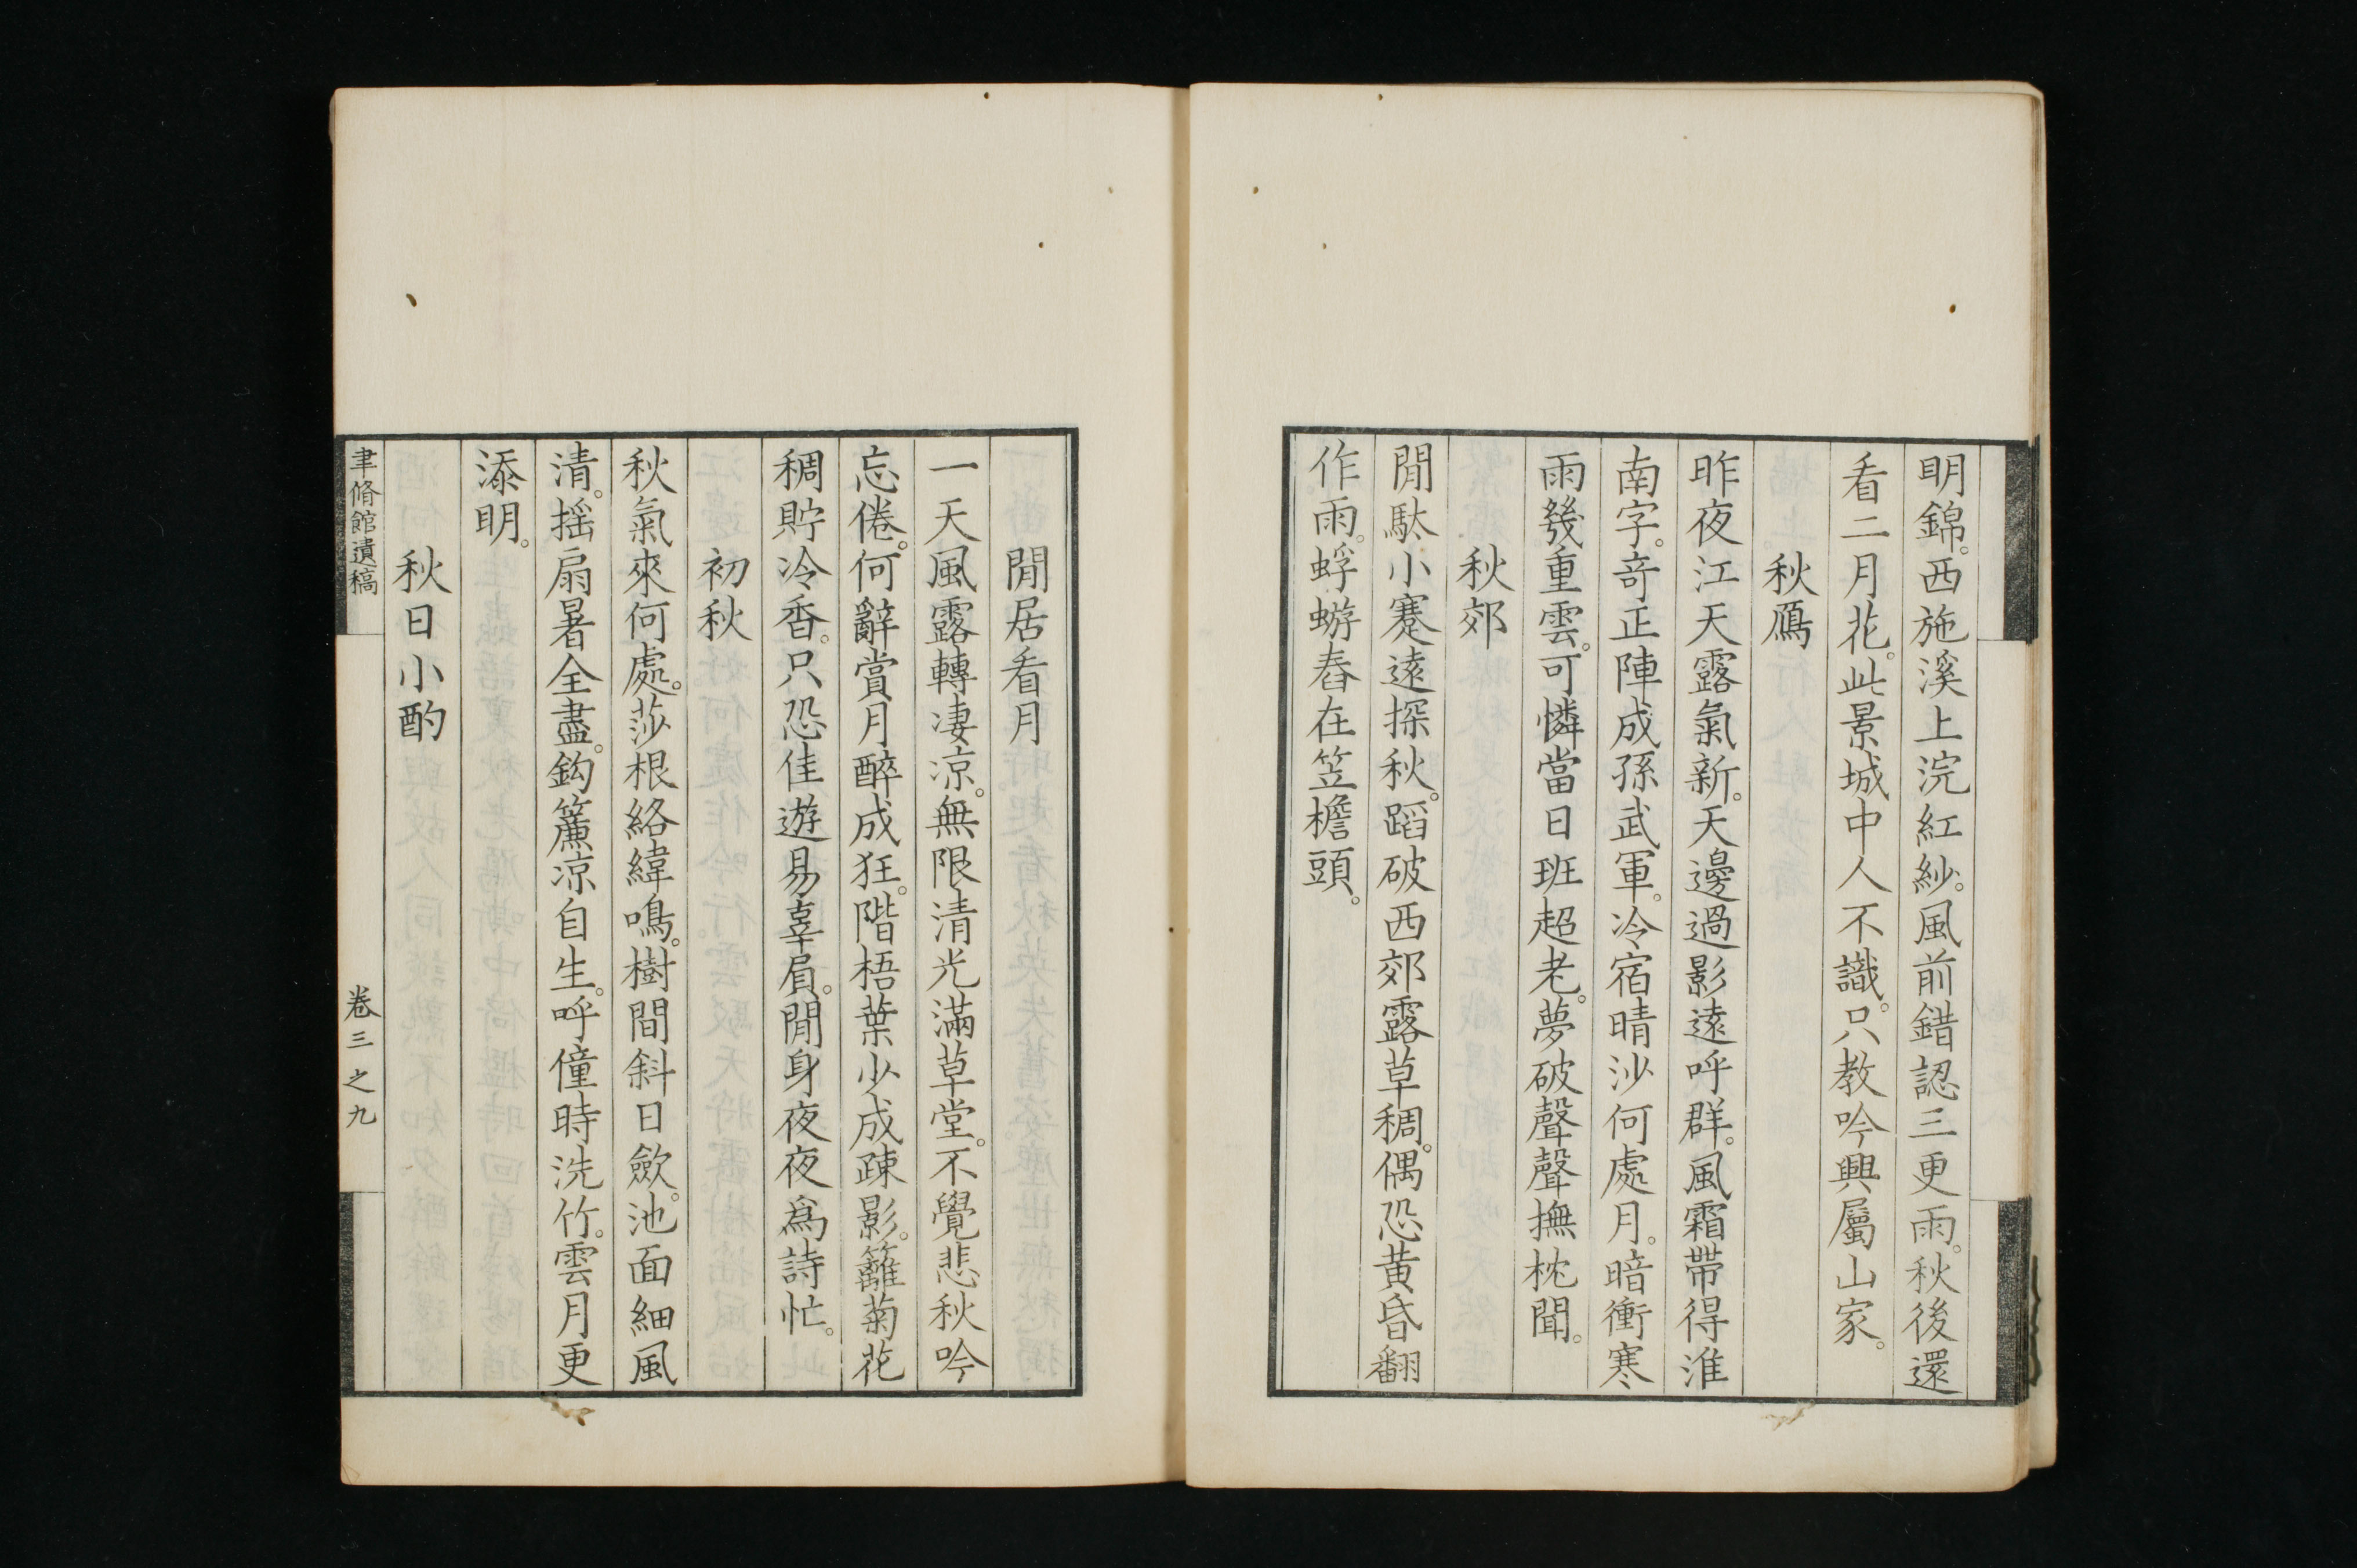 明錦。西施溪上浣紅紗。風前錯認三更雨。秋後還
看二月花。此景城中人不識。只教吟興屬山家。
秋鴈
昨夜江天露氣新。天邊過影遠呼群。風霜帶得淮
南字。奇正陣成孫武軍。冷宿晴沙何處月。暗衝寒
雨幾重雲。可憐當日班超老。夢破聲聲撫枕聞。
秋郊
閒馱小蹇遠探秋。蹈破西郊露草稠。偶恐黃昏翻
作雨。蜉蝣舂在笠檐頭。
閒居看月
一天風露轉凄凉。無限清光滿草堂。不覺悲秋吟
忘倦。何辭賞月醉成狂。階梧葉少成疎影。籬菊花
稠貯冷香。只恐佳遊易辜負。閒身夜夜爲詩忙。
初秋
秋氣來何處。莎根絡緯鳴。樹間斜日歛。池面細風
清。搖扇暑全盡。鈎簾凉自生。呼僮時洗竹。雲月更
添明。
秋日小酌
聿脩館遺稿
卷三之九